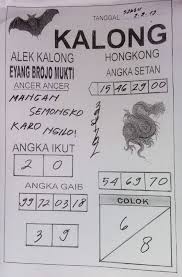 TANGGAL
KALONG
ALEK KALONG
HONGKONG
EYANG BROJO MUKTI
ANGKA SETAN
ANCER ANCER
15 46 29 00
MANGAN
SEMONGKO
KARO NGILO!
ANGKA IKUT
2 0
ANGKA GAIB
54 69 70
99 72 03 18
COLOK
3 9
6
8